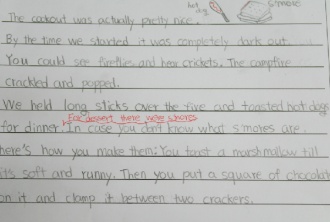 hot dog
S'more
The cookout was actually pretty nice.
By the time we started it was completely dark out.
You could see fireflies and hear crickets. The campfire
crackled and popped.
We held long sticks over the fire and toasted hot dogs
For dessert there were s'mores
for dinner. In case you don't know what s'mores are,
here's how you make them: You toast a marshmallow till
its soft and runny. Then you put a square of chocolat
on it and clamp it between two crackers.